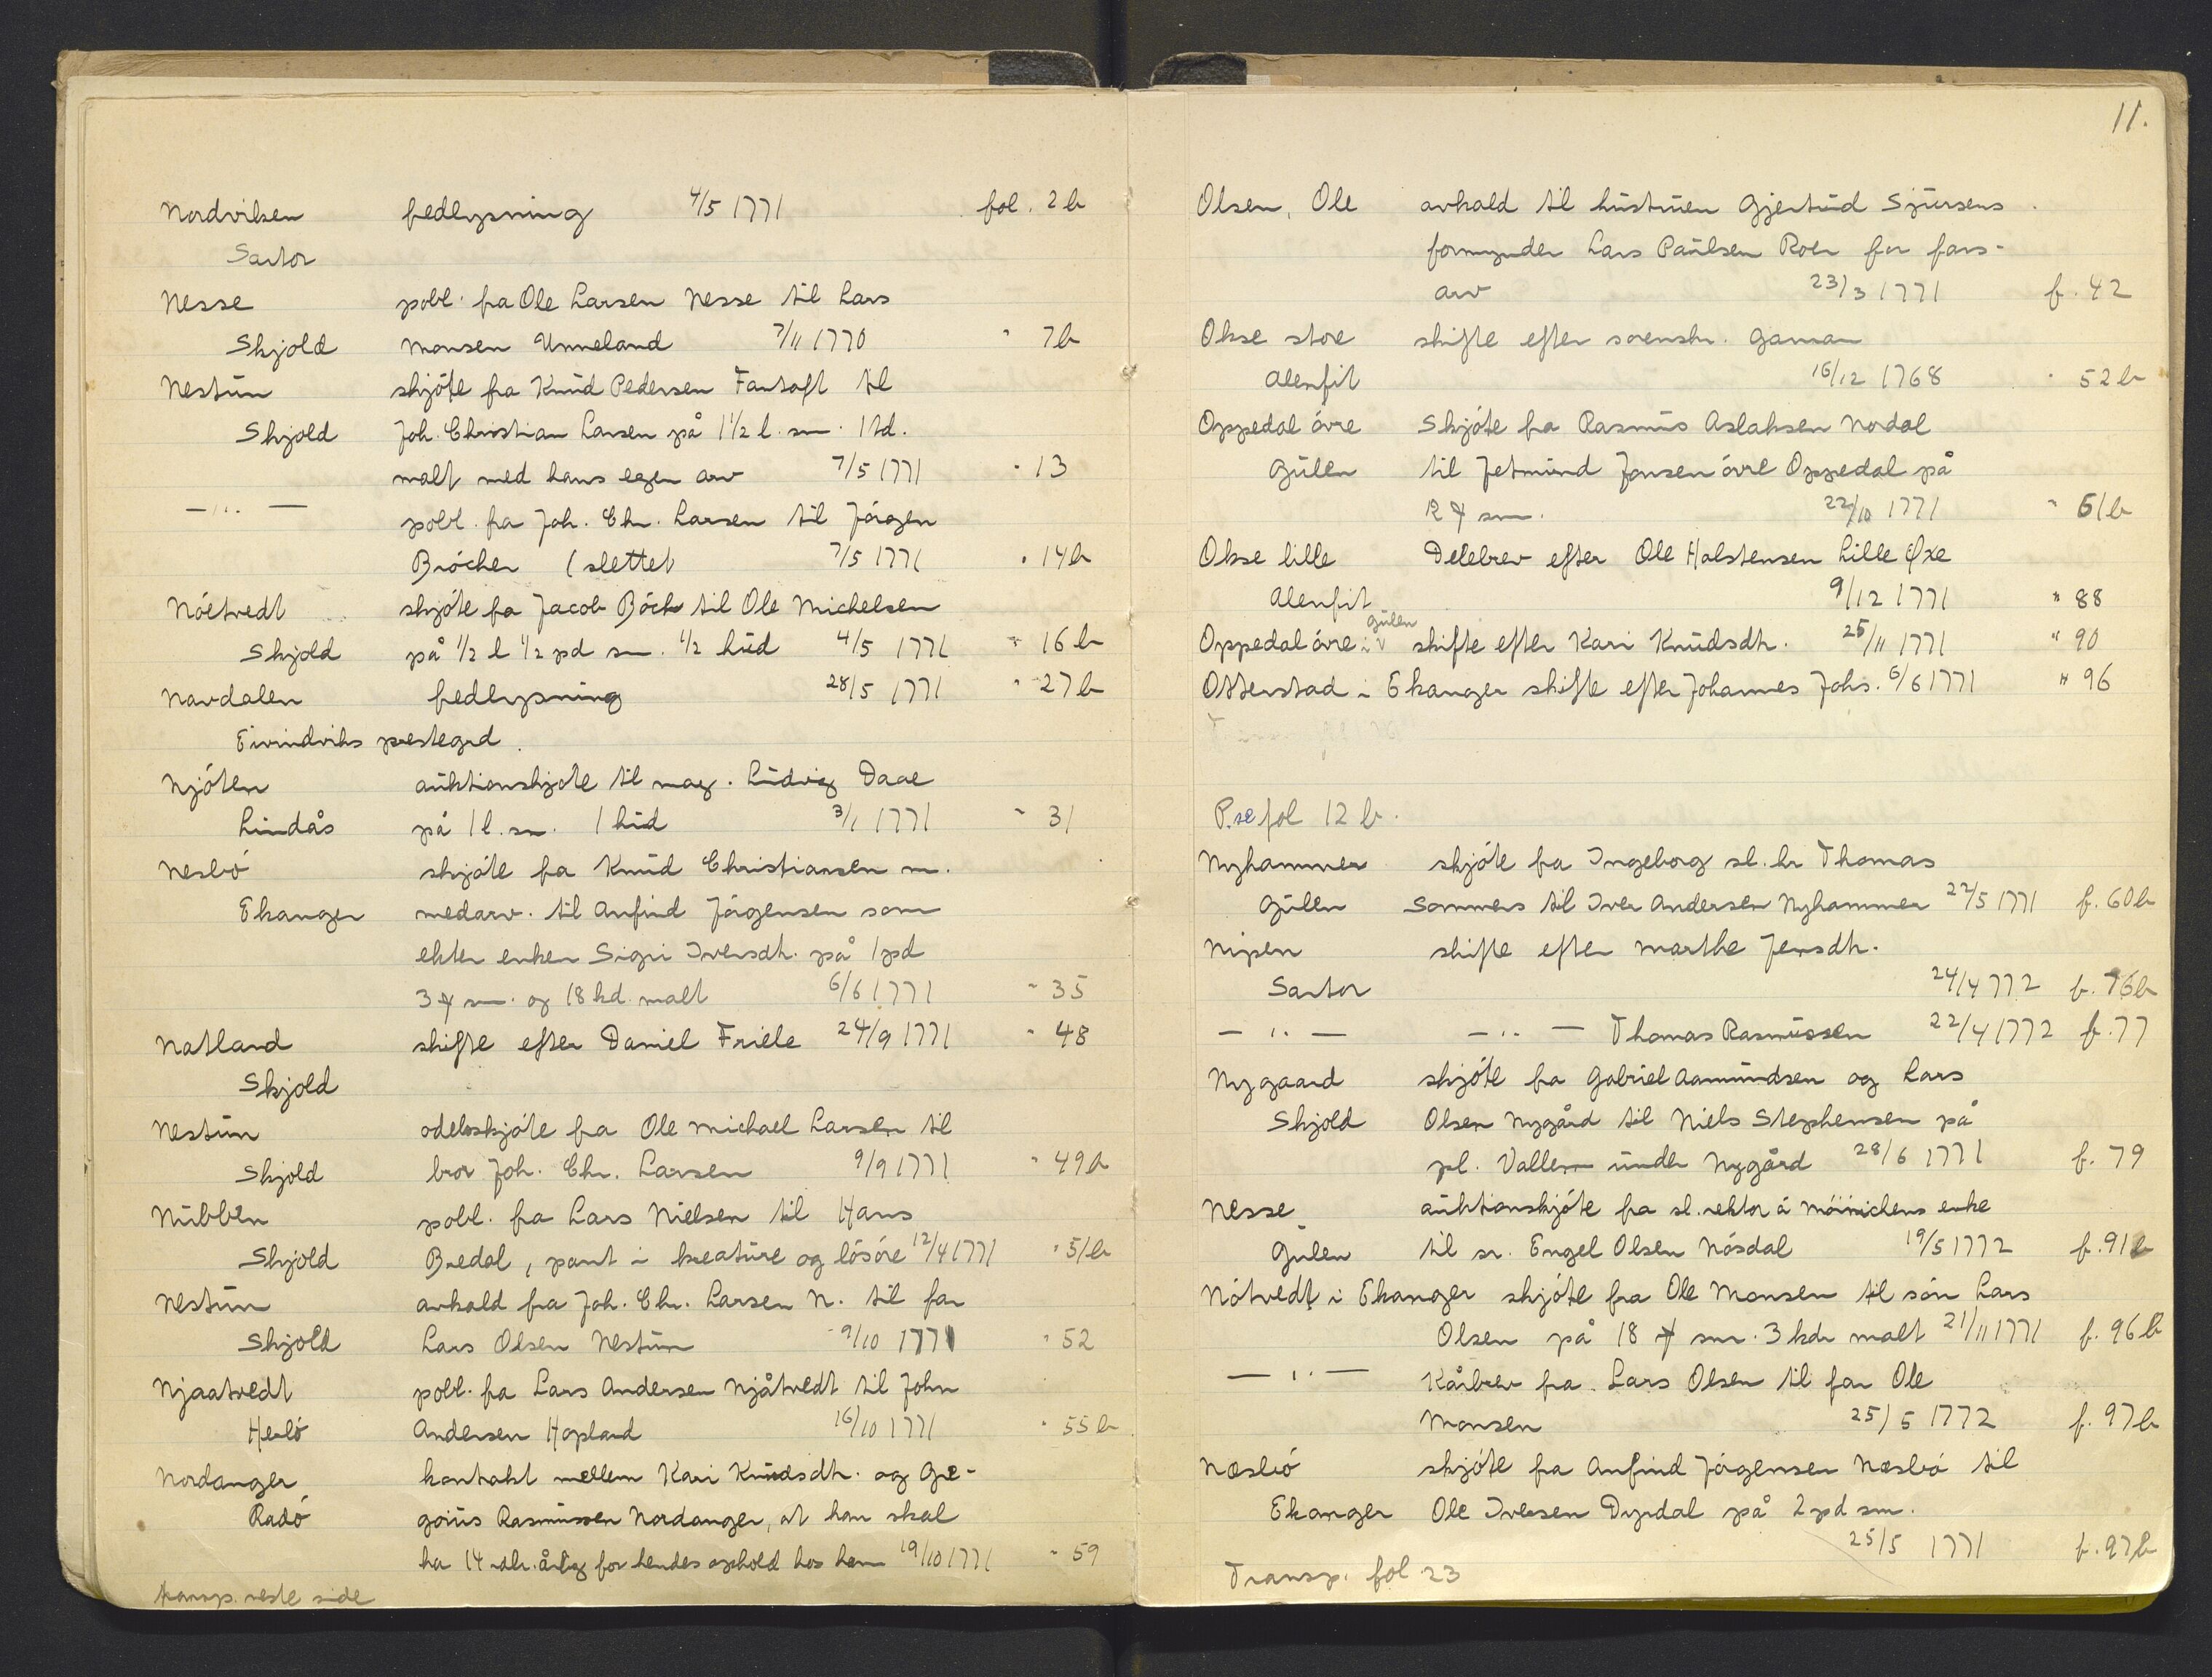 Nordviksen fredlysning 4/5 1771 fol. 2b
Sartor
Nesse pobl. fra Ole Larsen Nesse til Lars
Skjold Monsen Unneland 7/11 1770 " 7b
Nestun skjøte fra Knud Pedersen Fantoft til
Skjold Joh. Christian Larsen på 1 1/2 l. sm. 1 td.
malt med hans egen arv 7/5 1771 " 13
— " — pobl. fra Joh. Chr. Larsen til Jörgen
Bröcher (slettet 7/5 1771 " 14b
Nóttvedt skjóte fra Jacob Böck til Ole Michelsen
Skjold på 1/2 l 1/2 pd sm. 1/2 hud 4/5 1771 " 16b
Navdalen fredlysning 28/5 1771 " 27b
Eivindviks prestegrd.
Njóten auktionskjøte til mag. Ludvig Daae
Lindås på 1 l. sm. 1 hud 3/1 1771 " 31
Nesbó skjóte fra Knud Christiansen m.
Ekanger medarv. til Anfind Jörgensen som
ekter enken Sigri Iversdtr. på 1 pd
3 # sm. og 18 kd. malt 6/6 1771 " 35
Natland skifte efter Daniel Friele 24/9 1771 " 48
Skjold
Nestun odelsskjóte fra Ole Michael Larsen til
Skjold bror Joh. Chr. Larsen 9/9 1771 " 49b
Nubben pobl. fra Lars Nielsen til Hans
Skjold Bredal, pant i kreature og lösöre 12/4 1771 " 51b
Nestun avkald fra Joh. Chr. Larsen N. til far
Skjold Lars Olsen Nestun 9/10 1771 " 52
Njaatvedt pobl. fra Lars Andersen Njåtvedt til John
Herló Andersen Hopland 16/10 1771 " 55b
Nordanger kontrakt mellem Kari Knudsdtr. og Gre-
Radó goius Rasmussen Nordanger, at han skal
ha 14 rdr. årlig for hendes ophold hos ham 19/10 1771 " 59
transp. neste side
11.
Olsen, Ole avkald til hustruen Gjertrud Sjursens
formynder Lars Paulsen Roer for fars-
arv 23/3 1771 f. 42
Okse store skifte efter sorenskr. Garman
Alenfit 16/12 1768 " 52b
Oppedal óvre Skjóte fra Rasmus Aslaksen Nordal
Gulen til Jetmund Jonsen óvre Oppedal på
12 # sm. 22/10 1771 " 61b
Okse lille Delebrev efter Ole Holstensen Lille Øxe
Alenfit 9/12 1771 " 88
Oppedal óvre i Gulen skifte efter Kari Knudsdtr. 25/11 1771 " 90
Otterstad i Ekanger skifte efter Johannes Johs. 6/6 1771 " 96
P. se fol 12 b.
Nyhammer skjóte fra Ingeborg sl. hr Thomas
Gulen Sommers til Iver Andersen Nyhammer 22/5 1771 f. 60b
Nipen skifte efter Marthe Jensdtr.
Sartor 24/4 772 f. 76b
— " — — " — Thomas Rasmussen 22/4 1772 f. 77
Nygaard skjóte fra Gabriel Aamundsen og Lars
Skjold Olsen Nygård til Niels Stephensen på
pl. Vallem under Nygård 28/6 1771 f. 79
Nesse auktionskjóte fra sl. rektor á Móinichens enke
Gulen til sr. Engel Olsen Nósdal 19/5 1772 f. 91b
Nótvedt i Ekanger skjóte fra Ole Monsen til són Lars
Olsen på 18 # sm. 3 kdr malt 21/11 1771 f. 96b
— " — Kårbrev fra Lars Olsen til far Ole
Monsen 25/5 1772 f. 97b
Næsbó skjóte fra Anfind Jörgensen Næsbó til
Ekanger Ole Iversen Dyrdal på 2 pd sm.
25/5 1771 f. 97b
Transp. fol 23